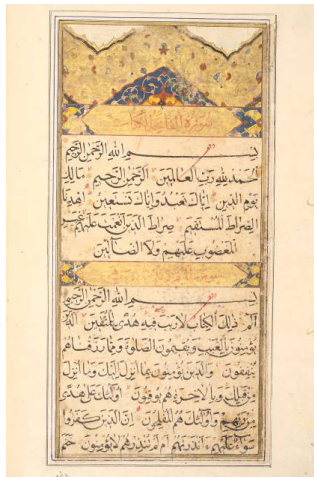 سورة الفاتحة الكتاب
بسم الله الرحمن الرحيم
الحمد لله رب العالمين الرحمن الرحيم مالك
يوم الدين إياك نعبد وإياك نستعين اهدنا
الصراط المستقيم صراط الذين أنعمت عليهم غير
المغضوب عليهم ولا الضالين
بسم الله الرحمن الرحيم
الم ذلك الكتاب لا ريب فيه هدى للمتقين الذين
يؤمنون بالغيب ويقيمون الصلوة ومما رزقناهم
ينفقون والذين يؤمنون بما أنزل إليك وما أنزل
من قبلك وبالآخرة هم يوقنون أولئك على هدى
من ربهم وأولئك هم المفلحون إن الذين كفروا
سواء عليهم أأنذرتهم أم لم تنذرهم لا يؤمنون ختم